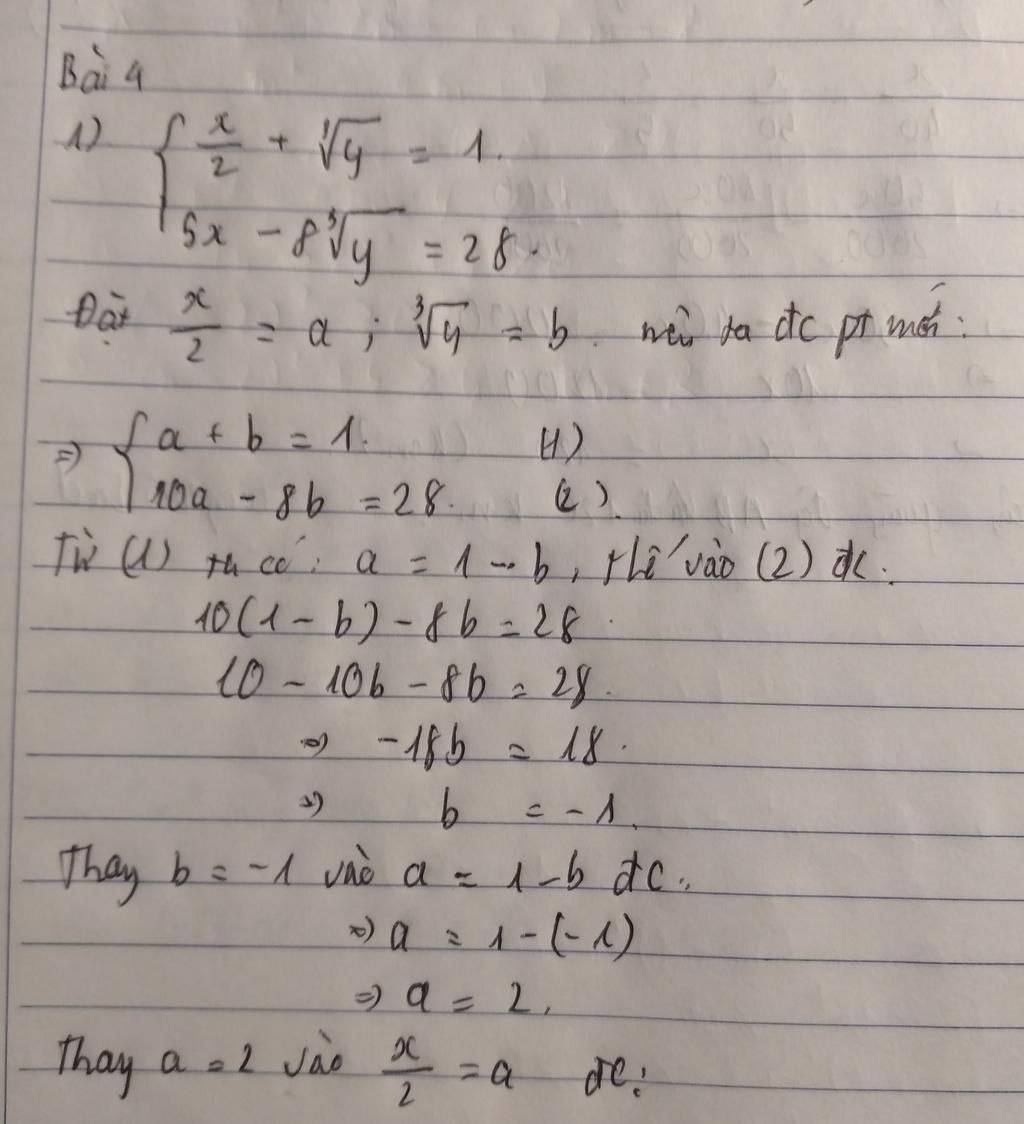 Bài 4
1) { x/2 + ∛y = 1.
5x - 8∛y = 28.
Đặt x/2 = a ; ∛y = b. nên ta đc pt mới :
=> { a + b = 1. (1)
10a - 8b = 28. (2).
Từ (1) ta có : a = 1 - b , thế vào (2) đc :
10(1 - b) - 8b = 28.
10 - 10b - 8b = 28.
=> -18b = 18.
=> b = -1.
Thay b = -1 vào a = 1 - b đc :
=> a = 1 - (-1)
=> a = 2.
Thay a = 2 vào x/2 = a đc :